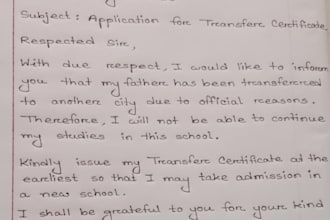 Subject: Application for Transfer Certificate,
Respected Sir,
With due respect, I would like to inform
you that my father has been transferred
to another city due to official reasons.
Therefore, I will not be able to continue
my studies in this school.
Kindly issue my Transfer Certificate at the
earliest so that I may take admission in
a new school.
I shall be grateful to you for your kind